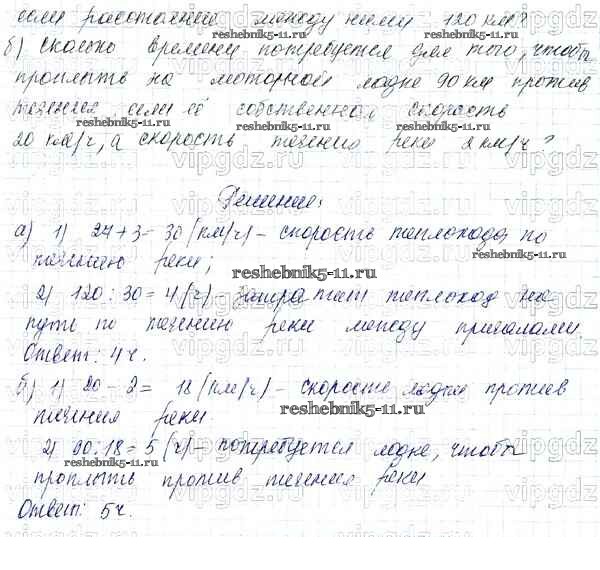 если расстояние между ними 120 км?
б) сколько времени потребуется для того, чтобы
проплыть на моторной лодке 90 км против
течения, если её собственная скорость
20 км/ч, а скорость течения реки 2 км/ч?
Решение:
а) 1) 27+3=30 (км/ч) – скорость теплохода по
течению реки;
2) 120:30=4 (ч) – затратит теплоход на
пути по течению реки между причалами.
Ответ: 4 ч.
б) 1) 20-2= 18 (км/ч) – скорость лодки против
течения реки.
2) 90:18=5 (ч) – потребуется лодке, чтобы
проплыть против течения реки
Ответ: 5 ч.
reshebnik5-11.ru
vipgdz.ru